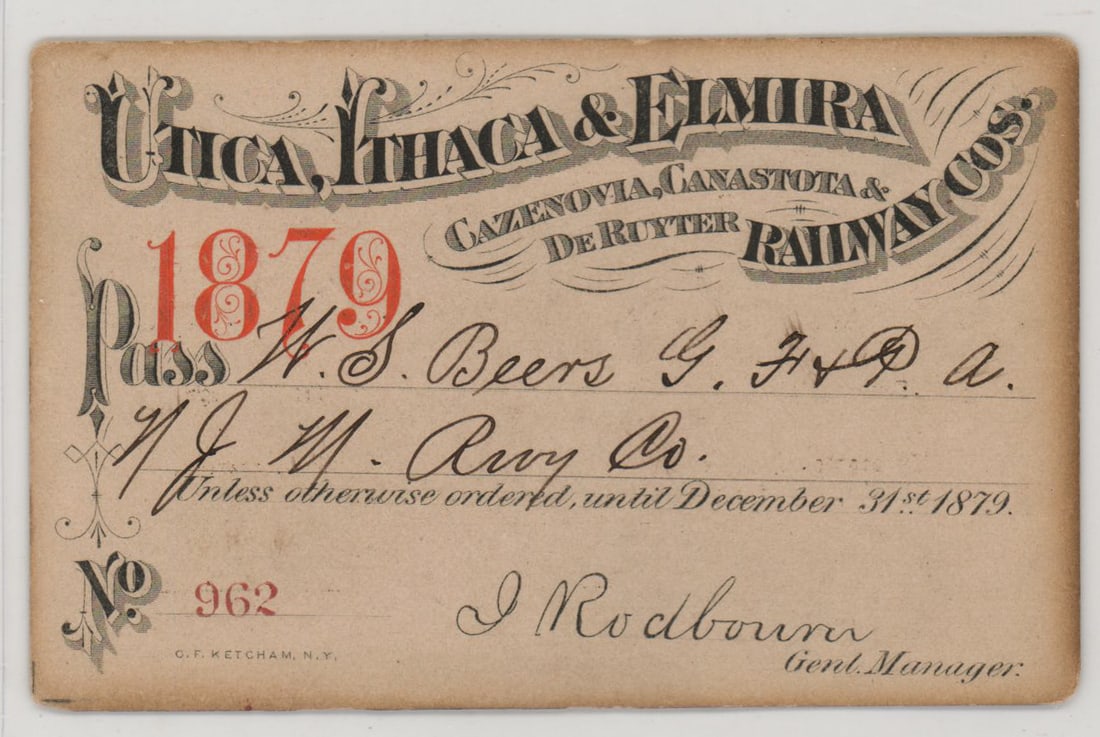 UTICA, ITHACA & ELMIRA
CAZENOVIA, CANASTOTA &
DE RUYTER RAILWAY COS.
1879
Pass W. S. Beers G. F & P. A.
N J M. Rwy Co.
Unless otherwise ordered, until December 31st 1879.
No. 962
I Rodbourn
Genl. Manager.
C. F. KETCHAM, N. Y.